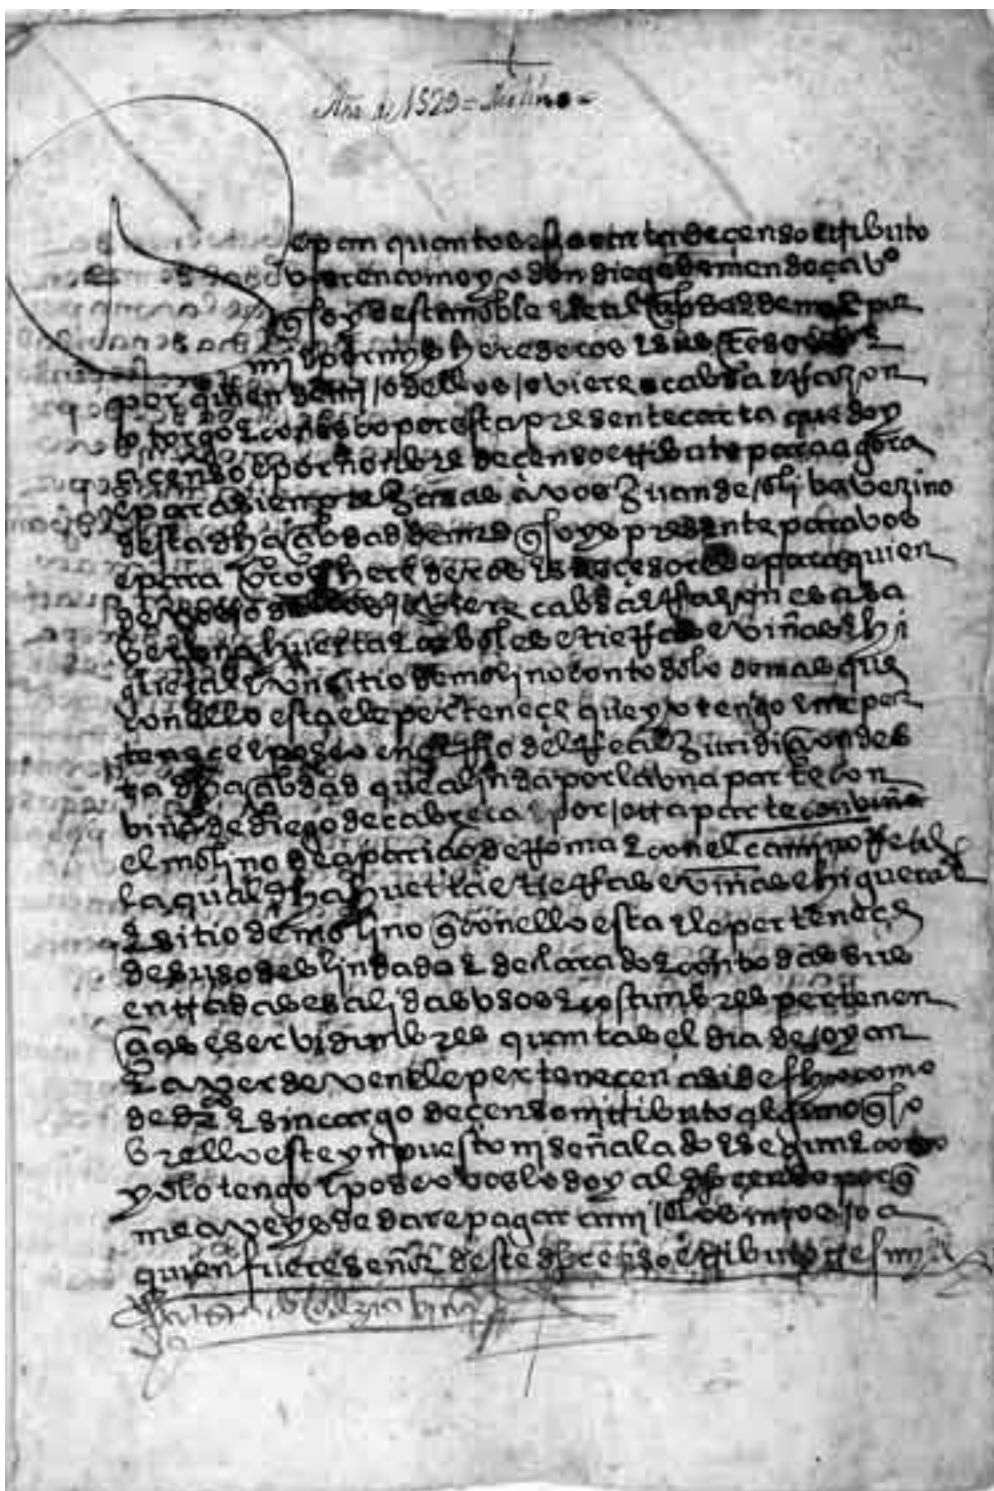 Año de 1529 = Molino =
Sepan quantos esta carta de çenso e tributo
vieren como yo don diego de mendoça vº
q soy desta noble e leal çibdad de
mi e por mys herederos e subçesores e
por quien de mi / o dellos / oviere cabsa e rrazon
/otorgo e conosco por esta presente carta que doy
a çenso e por nonbre de çenso e tributo para agora
e para siempre jamas a vos Juan de baverino
desta dha çibdad q soys presente para vos
e para vros herederos e subçesores e para quien
de vos / o dellos oviere cabsa e rrazon es a sa
ber vna huerta e arboles e tierras e viñas e hi
gueral con vn sitio de molino con todo lo demas que
con ello esta e le perteneçe que yo tengo e me per
teneçe e poseo en termino del rreal e juridiçion des
ta dha çibdad que alinda por la vna parte con
viña de diego de cabrera e por / otra parte con viña
el molino de e con el camino rreal
la qual dha huerta e tierras e viñas e higueral
e sitio de molino q con ello esta e le perteneçe
de suso deslindado e declarado con todas sus
entradas e salidas vsos e costunbres pertenen
çias e serbidunbres quantas el dia de / oy an
e aver deven e le perteneçen asi de fho como
de dro e sin cargo de çenso ni tributo alguno q so
brello este ynpuesto ni señalado e segun e como
yo lo tengo e poseo vos lo doy al dho çenso por q
me aveys de dar e pagar a mi / e a los mios / o a
quien fuere señor deste dho çenso e tributo